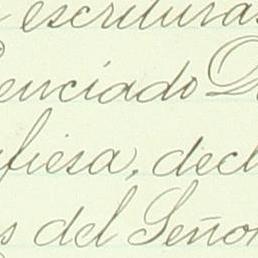 escrituras
enciado D
fiesa, decl
s del Señor